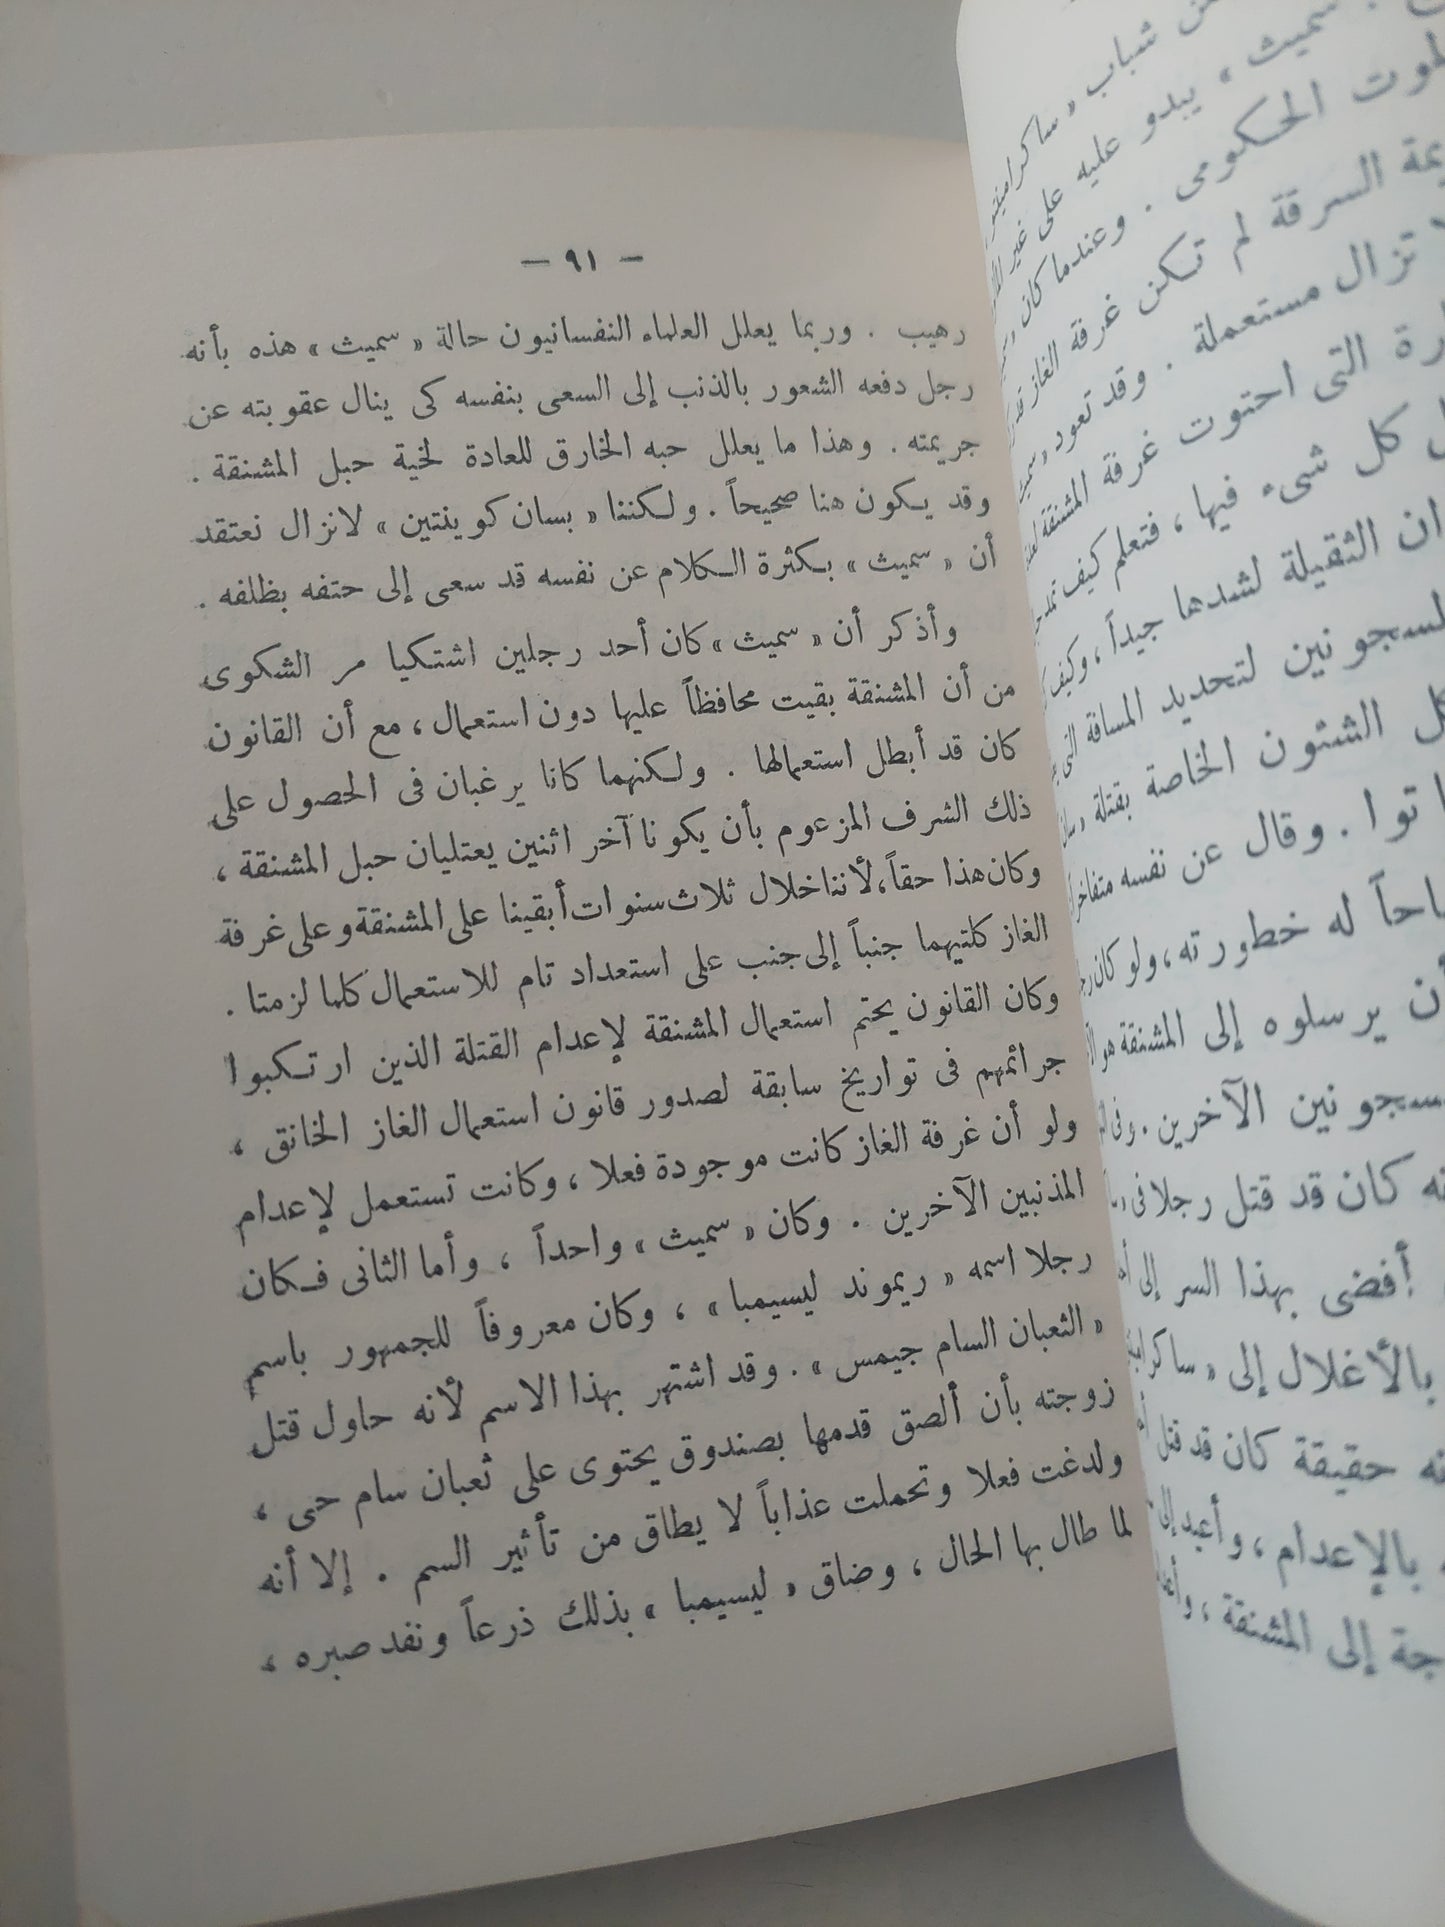 — ٩١ —
رهيب . وربما يعلل العلماء النفسانيون حالة « سميث » هذه بأنه
رجل دفعه الشعور بالذنب إلى السعى بنفسه كى ينال عقوبته عن
جريمته . وهذا ما يعلل حبه الخارق للعادة لخية حبل المشنقة .
وقد يكون هنا صحيحاً . ولكننا « بسان كوينتين » لانزال نعتقد
أن « سميث » بكثرة الكلام عن نفسه قد سعى إلى حتفه بظلفه .
وأذكر أن « سميث » كان أحد رجلين اشتكيا مر الشكوى
من أن المشنقة بقيت محافظاً عليها دون استعمال ، مع أن القانون
كان قد أبطل استعمالها . ولكنهما كانا يرغبان فى الحصول على
ذلك الشرف المزعوم بأن يكونا آخر اثنين يعتليان حبل المشنقة ،
وكان هذا حقاً، لأننا خلال ثلاث سنوات أبقينا على المشنقة وعلى غرفة
الغاز كلتيهما جنباً إلى جنب على استعداد تام للاستعمال كلما لزمتا .
وكان القانون يحتم استعمال المشنقة لإعدام القتلة الذين ارتكبوا
جرائمهم فى تواريخ سابقة لصدور قانون استعمال الغاز الخانق ،
ولو أن غرفة الغاز كانت موجودة فعلا ، وكانت تستعمل لإعدام
المذنبين الآخرين . وكان « سميث » واحداً ، وأما الثانى فكان
رجلا اسمه « ريموند ليسيمبا » ، وكان معروفاً للجمهور باسم
« الثعبان السام جيمس » . وقد اشتهر بهذا الاسم لأنه حاول قتل
زوجته بأن ألصق قدمها بصندوق يحتوى على ثعبان سام حى ،
ولدغت فعلا وتحملت عذاباً لا يطاق من تأثير السم . إلا أنه
لما طال بها الحال ، وضاق « ليسيمبا » بذلك ذرعاً ونفد صبره ،
شباب « ساكرامنتو
سميث » يبدو عليه على غير
الموت الحكومى . وعندما كان
السرقة لم تكن غرفة الغاز قد
تزال مستعملة . وقد تعود « سميث
التى احتوت غرفة المشنقة
كل شىء فيها ، فتعلم كيف
الثقيلة لشدها جيداً ، وكيف
لتحديد المسافة التى
الشئون الخاصة بقتلة « سان
توا . وقال عن نفسه متفاخراً
له خطورته ، ولو كان
يرسلوه إلى المشنقة هو
الآخرين . وفى
كان قد قتل رجلا فى
أفضى بهذا السر إلى
بالأغلال إلى « ساكرامنتو
حقيقة كان قد قتل
بالإعدام ، وأعيد إلى
إلى المشنقة ،